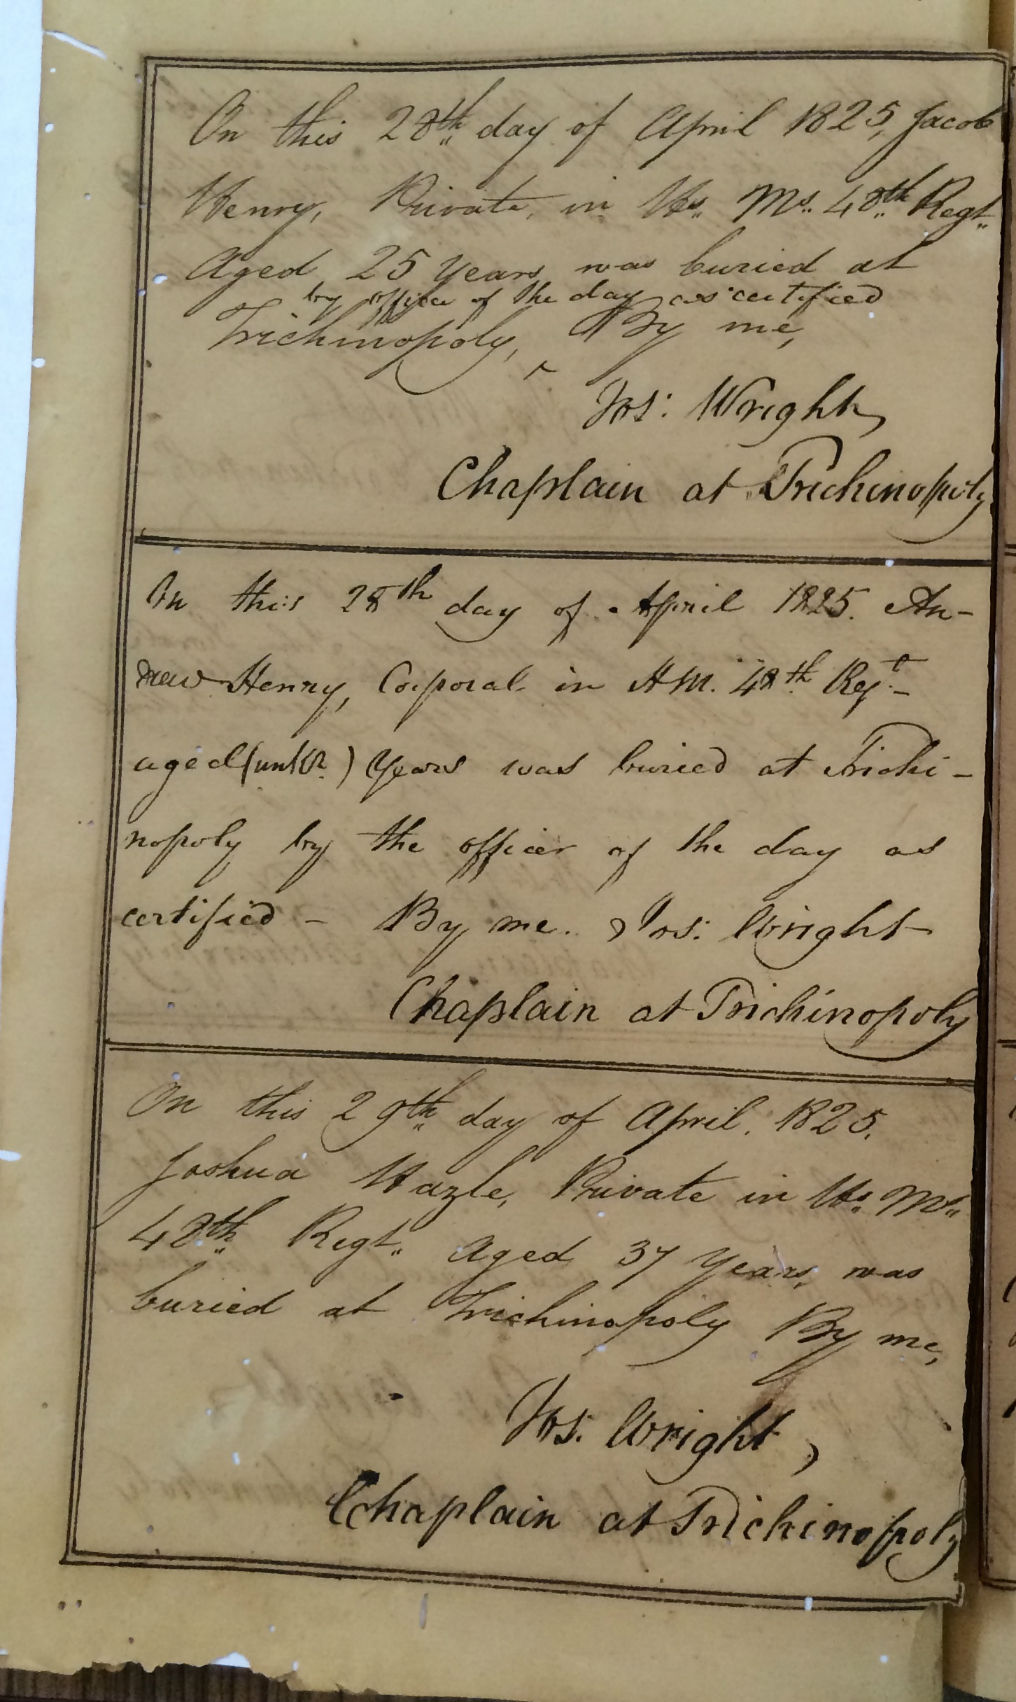 On this 28th day of April 1825, Jacob
Henry, Private, in Hs. Ms. 48th Regt.
Aged 25 Years, was buried at
by officer of the day as certified
Trichinopoly, ^ By me,
Jos: Wright,
Chaplain at Trichinopoly
On this 28th day of April 1825. An-
drew Henry, Corporal in H.M. 48th Regt. -
aged (unkn.) Years was buried at Trichi-
nopoly by the officer of the day as
certified - By me. Jos: Wright
Chaplain at Trichinopoly
On this 29th day of April. 1825.
Joshua Hazle, Private in Hs. Ms.
48th Regt. Aged 37 Years, was
buried at Trichinopoly By me,
Jos. Wright,
Chaplain at Trichinopoly